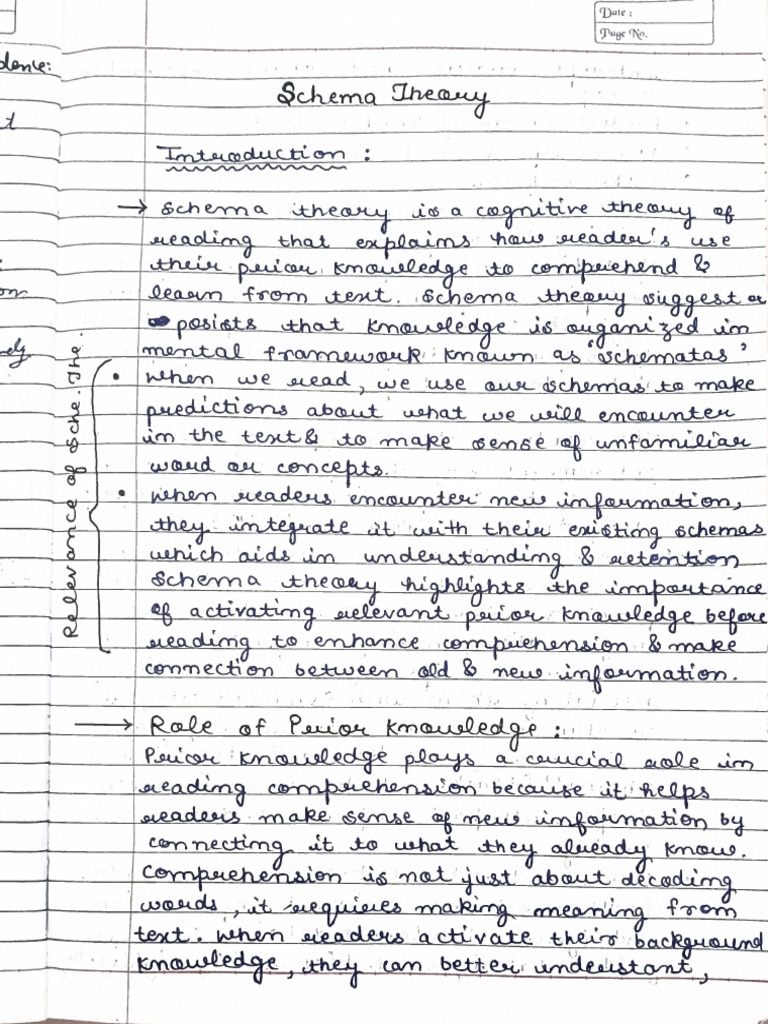 Date :
Page No.
dence:
t
:
on
ely
Schema Theory
Introduction :
→ Schema theory is a cognitive theory of
reading that explains how reader's use
their prior knowledge to comprehend &
learn from text. Schema theory suggest or
posists that knowledge is organized in
mental framework known as 'schematas'
Relevance of Sche. The.
• When we read, we use our schemas to make
predictions about what we will encounter
in the text & to make sense of unfamiliar
word or concepts.
• When readers encounter new information,
they integrate it with their existing schemas
which aids in understanding & retention
Schema theory highlights the importance
of activating relevant prior knowledge before
reading to enhance comprehension & make
connection between old & new information.
→ Role of Prior Knowledge :
Prior knowledge plays a crucial role in
reading comprehension because it helps
readers make sense of new information by
connecting it to what they already know.
Comprehension is not just about decoding
words, it requires making meaning from
text. When readers activate their background
knowledge, they can better understant,